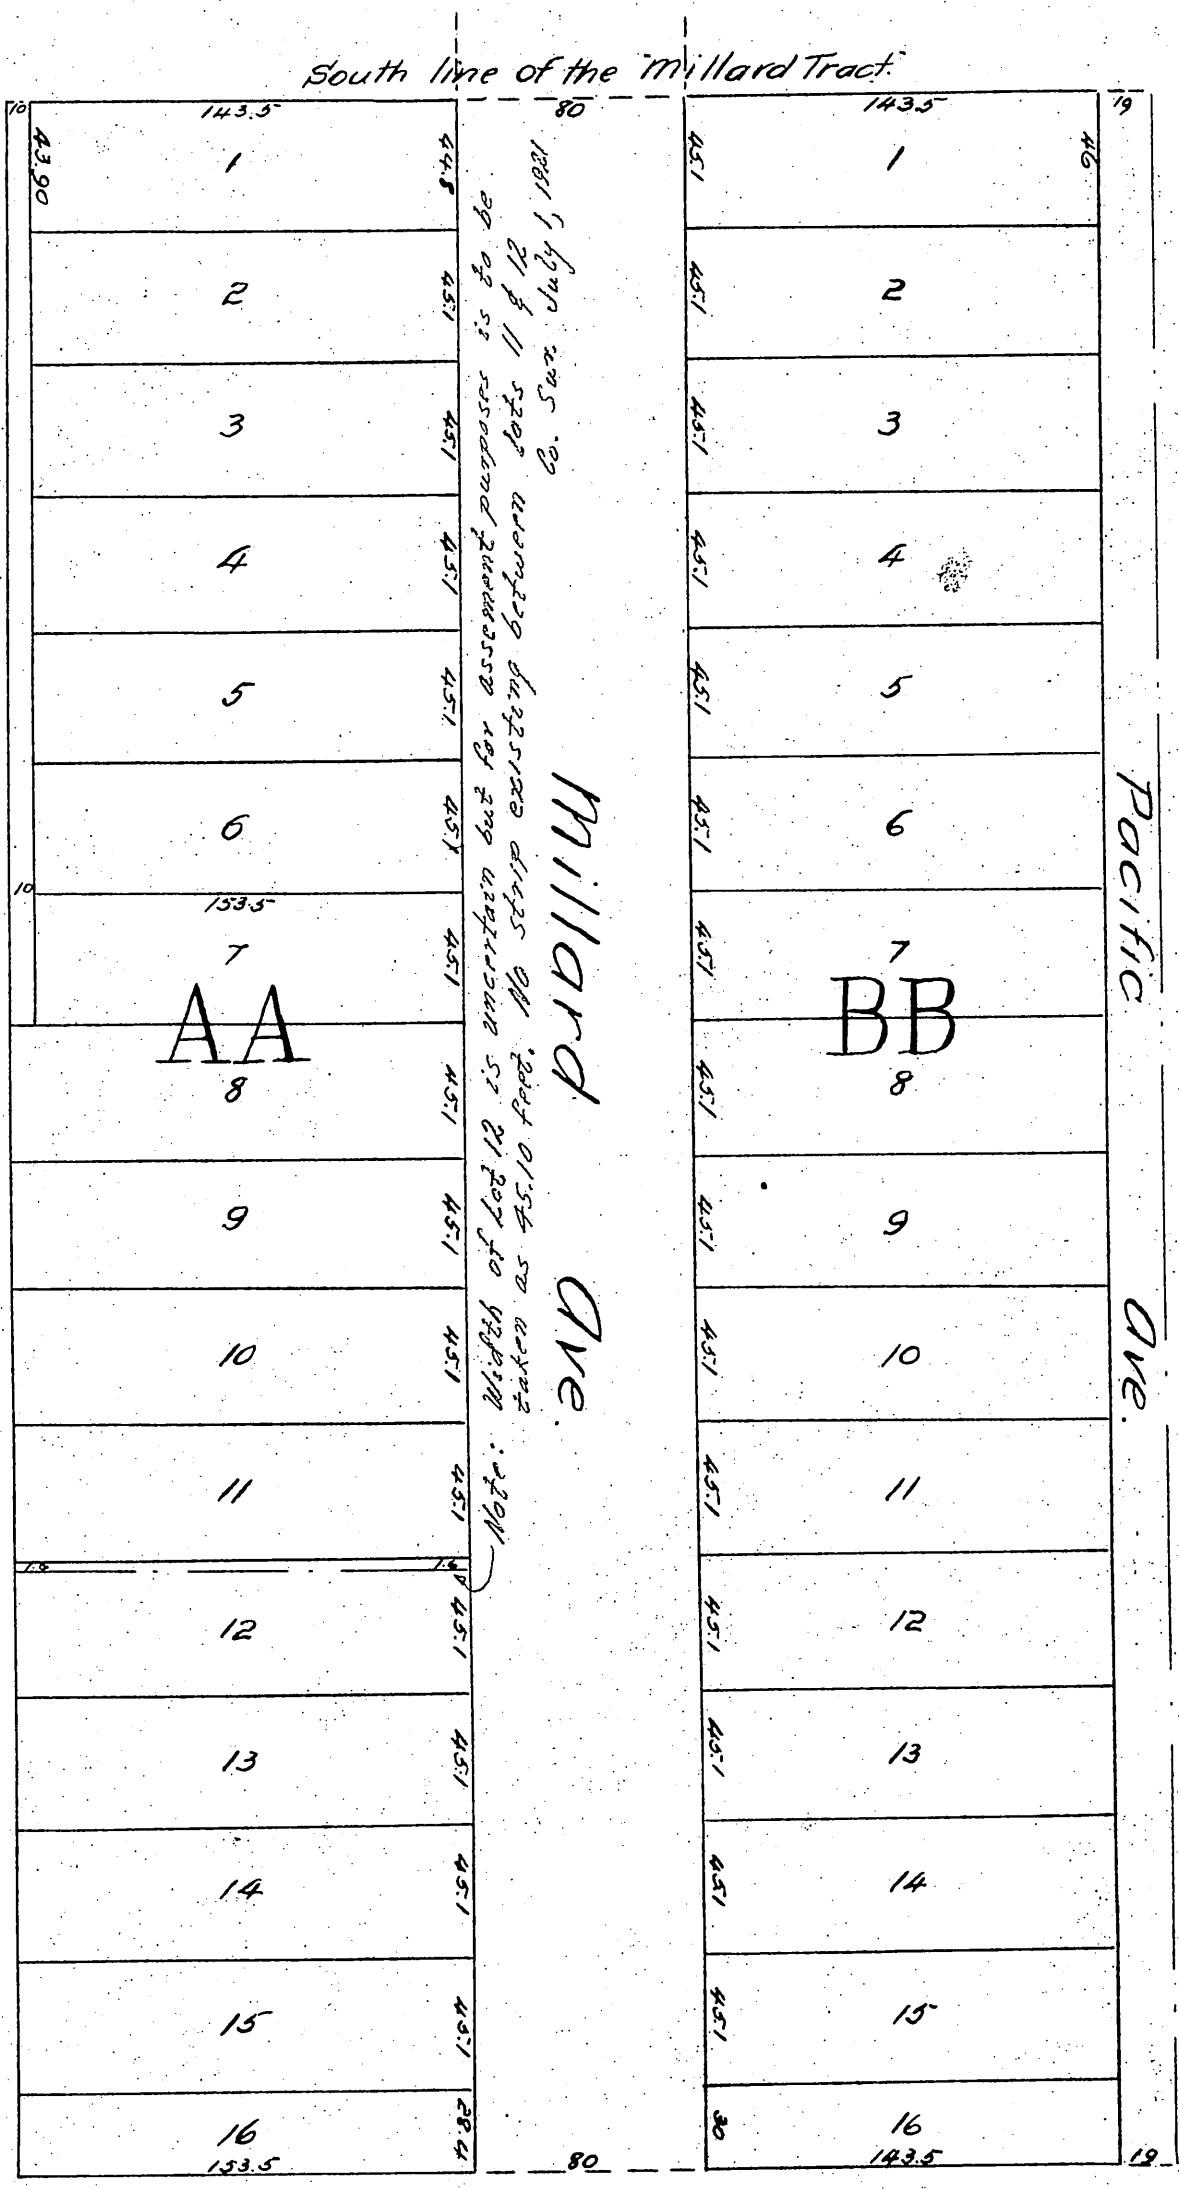 South line of the "Millard Tract."
10
143.5
80
143.5
19
43.90
1
44.8
45.1
1
46
2
45.1
45.1
2
3
45.1
45.1
3
4
45.1
45.1
4
5
45.1
45.1
5
6
45.1
45.1
6
10
153.5
7
45.1
45.1
7
AA
BB
8
45.1
45.1
8
9
45.1
45.1
9
10
45.1
45.1
10
11
45.1
45.1
11
1.6
1.6
12
45.1
45.1
12
13
45.1
45.1
13
14
45.1
45.1
14
15
45.1
45.1
15
16
28.4
30
16
153.5
80
143.5
19
Note: Width of Lot 12 is uncertain but for assessment purposes is to be
taken as 45.10 feet. No strip existing between lots 11 & 12
Co. Sur. July 1, 1921
Millard Ave.
Pacific Ave.